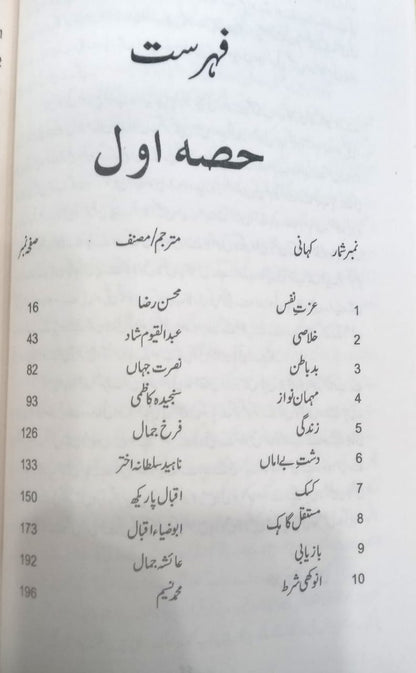 فہرست
حصہ اول
نمبر شمار کہانی مترجم/مصنف صفحہ نمبر
1 عزت نفس محسن رضا 16
2 خلاصی عبدالقیوم شاد 43
3 بدباطن نصرت جہاں 82
4 مہمان نواز سنجیدہ کاظمی 93
5 زندگی فرخ جمال 126
6 دشت بے اماں ناہید سلطانہ اختر 133
7 کسک اقبال پاریکھ 150
8 مستقل گاہک ابوضیاء اقبال 173
9 بازیابی عائشہ جمال 192
10 انوکھی شرط محمد نسیم 196